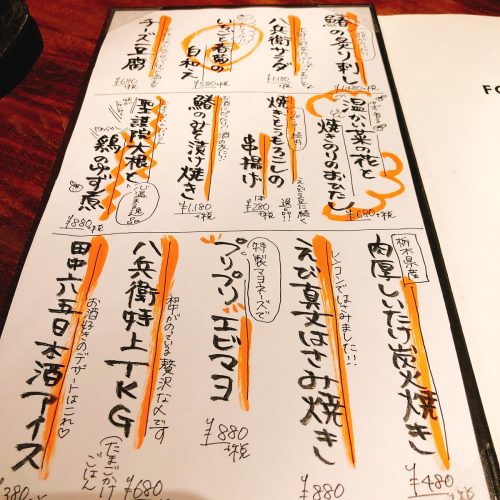 鰆の炙り刺し
¥1,480+税
八兵衛サラダ
¥1,180+税
いちごと春菊の
白和え
¥580+税
チーズ豆腐
¥680+税
温かい菜の花と
焼きのりのおひたし
¥680+税
焼きとうもろこしの
串揚げ
えびと豆に続く
逸品!!!
1本
¥280+税
鰆のみそ漬け焼き
¥1,180+税
聖護院大根と
鶏のゆず煮
心温まる逸品
¥880+税
栃木県産
肉厚しいたけ炭火焼き
¥480+税
えび真丈はさみ焼き
レンコンではさみました!!!
¥880+税
特製マヨネーズで
プリプリエビマヨ
¥880+税
八兵衛特上TKG
(たまごかけごはん
¥680+税
田中六五日本酒アイス
お酒好きのデザートはこれ♡
¥380+税